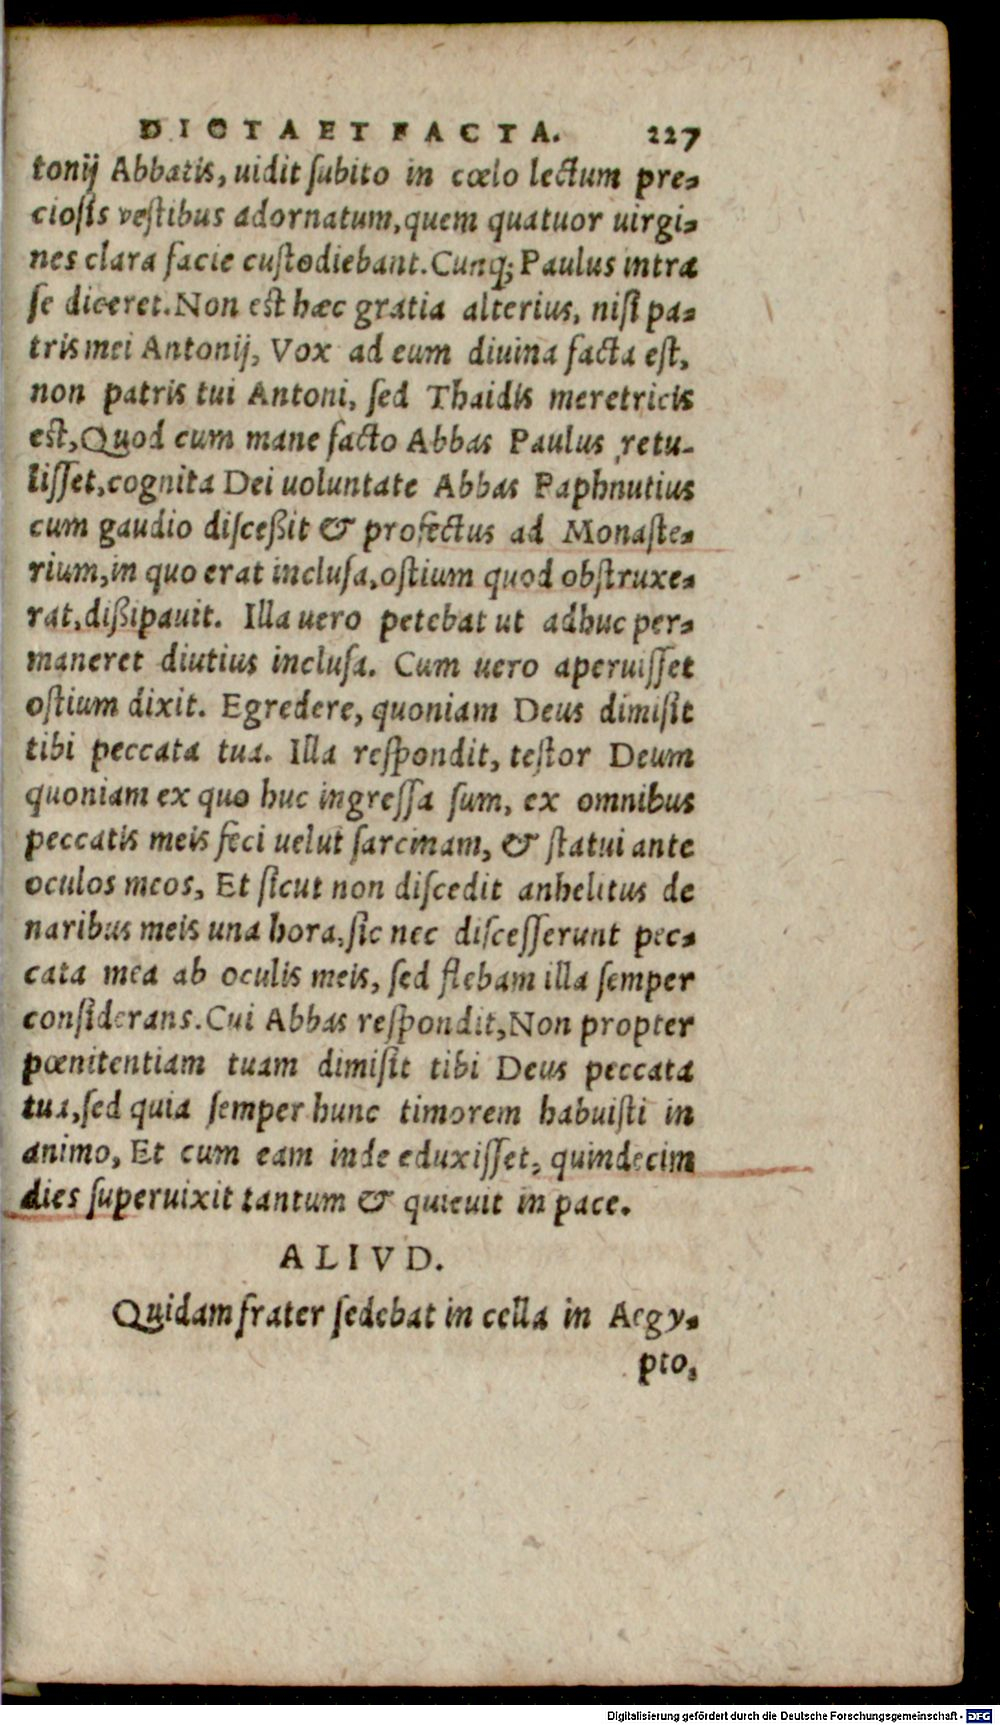 DICTA ET FACTA. 227
tonij Abbatis, uidit ſubito in cœlo lectum pre-
cioſis veſtibus adornatum, quem quatuor uirgi-
nes clara facie cuſtodiebant. Cunq; Paulus intra
ſe diceret. Non eſt hæc gratia alterius, niſi pa-
tris mei Antonij, Vox ad eum diuina facta eſt,
non patris tui Antoni, ſed Thaidis meretricis
eſt, Quod cum mane facto Abbas Paulus retu-
liſſet, cognita Dei uoluntate Abbas Paphnutius
cum gaudio diſceßit & profectus ad Monaſte-
rium, in quo erat incluſa, oſtium quod obſtruxe-
rat, dißipauit. Illa uero petebat ut adhuc per-
maneret diutius incluſa. Cum uero aperuiſſet
oſtium dixit. Egredere, quoniam Deus dimiſit
tibi peccata tua. Illa reſpondit, teſtor Deum
quoniam ex quo huc ingreſſa ſum, ex omnibus
peccatis meis feci uelut ſarcinam, & ſtatui ante
oculos meos, Et ſicut non diſcedit anhelitus de
naribus meis una hora, ſic nec diſceſſerunt pec-
cata mea ab oculis meis, ſed flebam illa ſemper
conſiderans. Cui Abbas reſpondit, Non propter
pœnitentiam tuam dimiſit tibi Deus peccata
tua, ſed quia ſemper hunc timorem habuiſti in
animo, Et cum eam inde eduxiſſet, quindecim
dies ſuperuixit tantum & quieuit in pace.
ALIVD.
Quidam frater ſedebat in cella in Aegy-
pto,
Digitalisierung gefördert durch die Deutsche Forschungsgemeinschaft - DFG